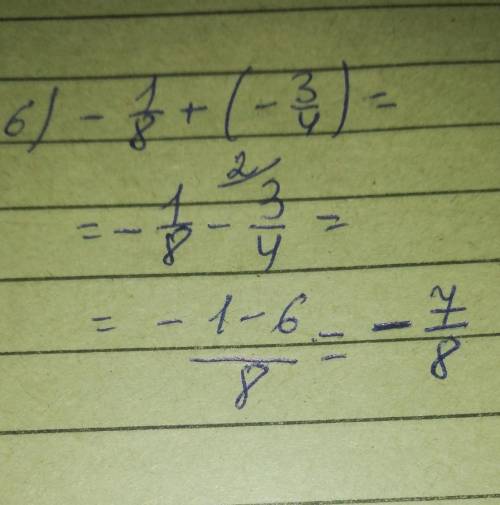 б) - 1/8 + (- 3/4) =
2/
= - 1/8 - 3/4 =
= - 1 - 6/8 = - 7/8